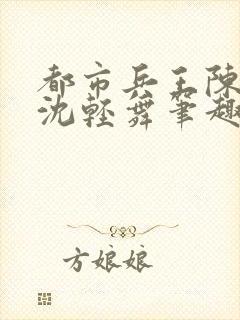 都市兵王陳
沈輕舞筆趣
方娘娘